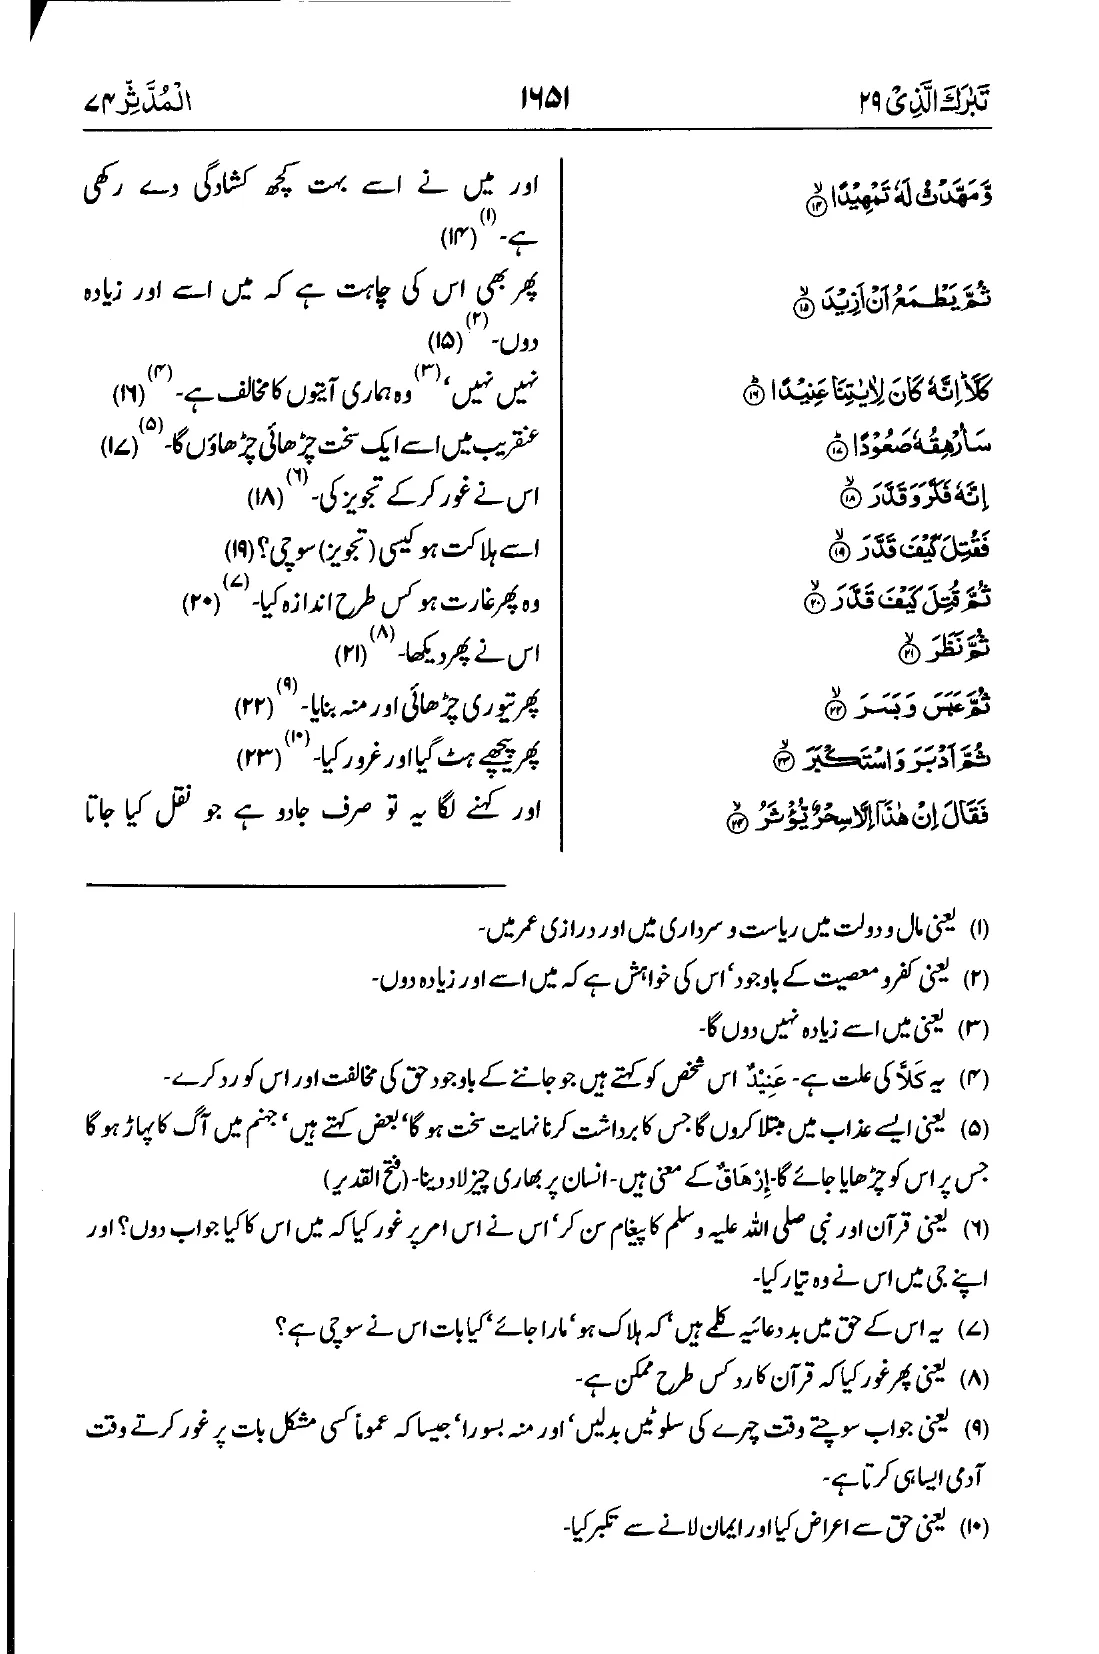 تَبٰرَكَ الَّذِیْ ۲۹
۱۶۵۱
الْمُدَّثِّر ۷۴
وَّمَهَّدْتُّ لَهٗ تَمْهِیْدًا ۙ۱۴
ثُمَّ یَطْمَعُ اَنْ اَزِیْدَ ۙ۱۵
كَلَّا ؕ اِنَّهٗ كَانَ لِاٰیٰتِنَا عَنِیْدًا ؕ۱۶
سَاُرْهِقُهٗ صَعُوْدًا ؕ۱۷
اِنَّهٗ فَكَّرَ وَقَدَّرَ ۙ۱۸
فَقُتِلَ كَیْفَ قَدَّرَ ۙ۱۹
ثُمَّ قُتِلَ كَیْفَ قَدَّرَ ۙ۲۰
ثُمَّ نَظَرَ ۙ۲۱
ثُمَّ عَبَسَ وَبَسَرَ ۙ۲۲
ثُمَّ اَدْبَرَ وَاسْتَكْبَرَ ۙ۲۳
فَقَالَ اِنْ هٰذَاۤ اِلَّا سِحْرٌ یُّؤْثَرُ ۙ۲۴
اور میں نے اسے بہت کچھ کشادگی دے رکھی
ہے۔(۱) (۱۴)
پھر بھی اس کی چاہت ہے کہ میں اسے اور زیادہ
دوں۔(۲) (۱۵)
نہیں نہیں،(۳) وہ ہماری آیتوں کا مخالف ہے۔(۴) (۱۶)
عنقریب میں اسے ایک سخت چڑھائی چڑھاؤں گا۔(۵) (۱۷)
اس نے غور کرکے تجویز کی۔(۶) (۱۸)
اسے ہلاکت ہو کیسی (تجویز) سوچی؟ (۱۹)
وہ پھر غارت ہو کس طرح اندازہ کیا۔(۷) (۲۰)
اس نے پھر دیکھا۔(۸) (۲۱)
پھر تیوری چڑھائی اور منہ بنایا۔(۹) (۲۲)
پھر پیچھے ہٹ گیا اور غرور کیا۔(۱۰) (۲۳)
اور کہنے لگا یہ تو صرف جادو ہے جو نقل کیا جاتا
(۱) یعنی مال و دولت میں ریاست و سرداری میں اور درازی عمر میں۔
(۲) یعنی کفر و معصیت کے باوجود، اس کی خواہش ہے کہ میں اسے اور زیادہ دوں۔
(۳) یعنی میں اسے زیادہ نہیں دوں گا۔
(۴) یہ كَلَّا کی علت ہے۔ عَنِیْدٌ اس شخص کو کہتے ہیں جو جاننے کے باوجود حق کی مخالفت اور اس کو رد کرے۔
(۵) یعنی ایسے عذاب میں مبتلا کروں گا جس کا برداشت کرنا نہایت سخت ہو گا، بعض کہتے ہیں، جہنم میں آگ کا پہاڑ ہو گا
جس پر اس کو چڑھایا جائے گا۔ اِرْهَاقٌ کے معنی ہیں۔ انسان پر بھاری چیز لاد دینا۔ (فتح القدیر)
(۶) یعنی قرآن اور نبی صلی اللہ علیہ وسلم کا پیغام سن کر، اس نے اس امر پر غور کیا کہ میں اس کا کیا جواب دوں؟ اور
اپنے جی میں اس نے وہ تیار کیا۔
(۷) یہ اس کے حق میں بددعائیہ کلمے ہیں، کہ ہلاک ہو، مارا جائے، کیا بات اس نے سوچی ہے؟
(۸) یعنی پھر غور کیا کہ قرآن کا رد کس طرح ممکن ہے۔
(۹) یعنی جواب سوچتے وقت چہرے کی سلوٹیں بدلیں، اور منہ بسورا، جیسا کہ عموماً کسی مشکل بات پر غور کرتے وقت
آدمی ایسا ہی کرتا ہے۔
(۱۰) یعنی حق سے اعراض کیا اور ایمان لانے سے تکبر کیا۔